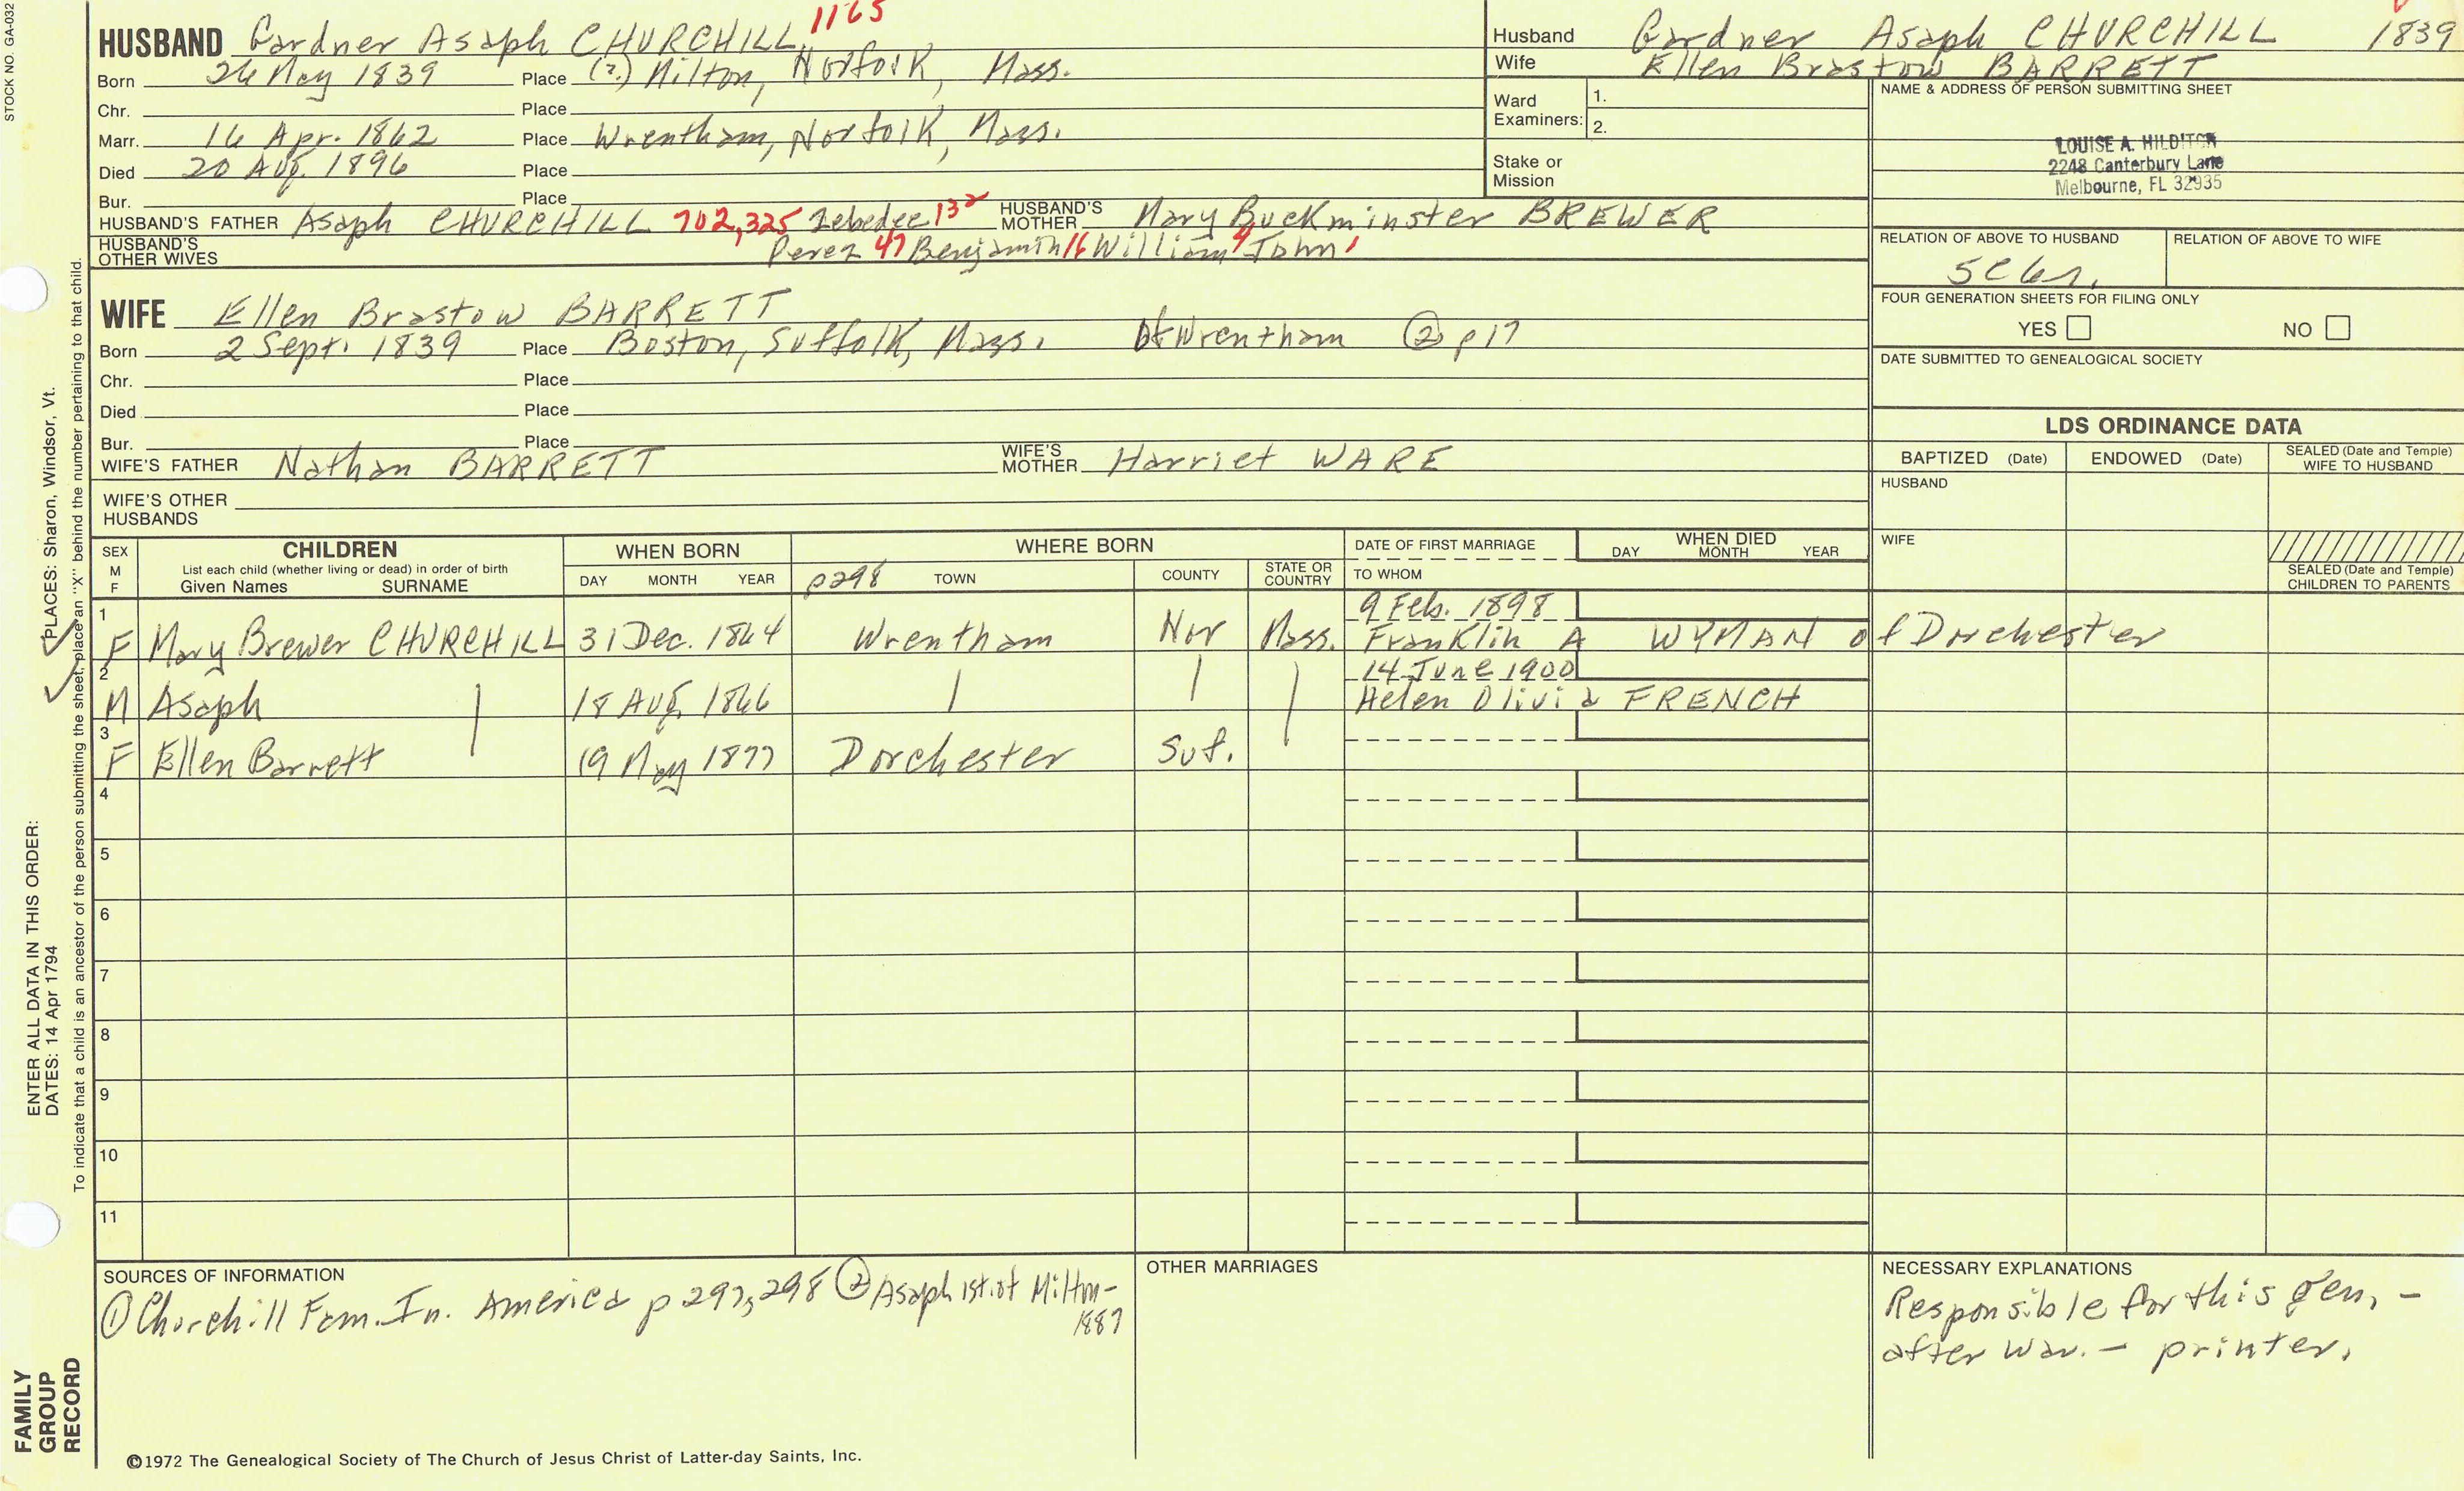 STOCK NO. GA-032
1165
HUSBAND Gardner Asaph CHURCHILL
Born 26 May 1839 Place (?) Milton, Norfolk, Mass.
Chr. Place
Marr. 16 Apr. 1862 Place Wrentham, Norfolk, Mass.
Died 20 Aug. 1896 Place
Bur. Place
HUSBAND'S FATHER Asaph CHURCHILL 702, 325 Zebedee 132 HUSBAND'S MOTHER Mary Buckminster BREWER
HUSBAND'S OTHER WIVES Perez 47 Benjamin 16 William 4 John 1
Husband Gardner Asaph CHURCHILL 1839
Wife Ellen Brastow BARRETT
Ward Examiners: 1.
2.
Stake or Mission
NAME & ADDRESS OF PERSON SUBMITTING SHEET
LOUISE A. HILDITCH
2248 Canterbury Lane
Melbourne, FL 32935
RELATION OF ABOVE TO HUSBAND RELATION OF ABOVE TO WIFE
5C6r.
FOUR GENERATION SHEETS FOR FILING ONLY
YES NO
DATE SUBMITTED TO GENEALOGICAL SOCIETY
WIFE Ellen Brastow BARRETT
Born 2 Sept. 1839 Place Boston, Suffolk, Mass. of Wrentham ② p17
Chr. Place
Died Place
Bur. Place
WIFE'S FATHER Nathan BARRETT WIFE'S MOTHER Harriet WARE
WIFE'S OTHER HUSBANDS
LDS ORDINANCE DATA
BAPTIZED (Date) ENDOWED (Date) SEALED (Date and Temple) WIFE TO HUSBAND
HUSBAND
WIFE
SEALED (Date and Temple) CHILDREN TO PARENTS
SEX M F
CHILDREN
List each child (whether living or dead) in order of birth
Given Names SURNAME
WHEN BORN
DAY MONTH YEAR
WHERE BORN
p298 TOWN COUNTY STATE OR COUNTRY
DATE OF FIRST MARRIAGE
TO WHOM
WHEN DIED
DAY MONTH YEAR
1 9 Feb. 1898
F Mary Brewer CHURCHILL 31 Dec. 1864 Wrentham Nor Mass. Franklin A WYMAN of Dorchester
2 14 June 1900
M Asaph | 18 Aug. 1866 | | | Helen Olivia FRENCH
3
F Ellen Barrett 19 May 1877 Dorchester Suf.
4
5
6
7
8
9
10
11
SOURCES OF INFORMATION
① Churchill Fam. In. America p 297, 298 ② Asaph 1st of Milton - 1887
OTHER MARRIAGES
NECESSARY EXPLANATIONS
Responsible for this gen. -
after war. - printer.
©1972 The Genealogical Society of The Church of Jesus Christ of Latter-day Saints, Inc.
FAMILY
GROUP
RECORD
ENTER ALL DATA IN THIS ORDER:
DATES: 14 Apr 1794
PLACES: Sharon, Windsor, Vt.
To indicate that a child is an ancestor of the person submitting the sheet, place an "X" behind the number pertaining to that child.